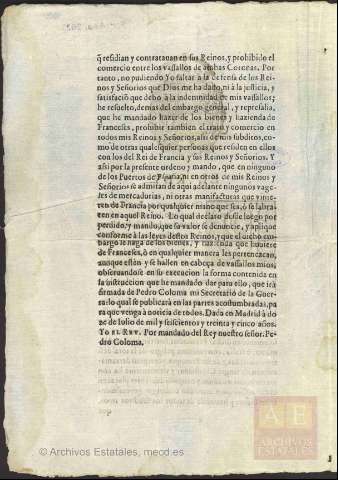 q̃ residian y contratauan en sus Reinos, y prohibido el
comercio entre los vassallos de ambas Coronas. Por
tanto, no pudiendo Yo faltar à la defensa de los Rei
nos y Señorios que Dios me ha dado, ni à la justicia, y
satisfació que debo à la indemnidad de mis vassallos;
he resuelto, demas del embargo general, y represalia,
que he mandado hazer de los bienes y hazienda de
Franceses, prohibir tambien el trato y comercio en
todos mis Reinos y Señorios, assi de mis subditos, co-
mo de otras qualesquier personas que residen en ellos
con los del Rei de Francia y sus Reinos y Señorios. Y
assi por la presente ordeno y mando, que en ninguno
de los Puertos de España, ni en otros de mis Reinos y
Señorios se admitan de aqui adelante ningunos vage-
les de mercadurias, ni otras manifacturas que vinie-
ren de Francia por qualquier mano que sea, ò se labra
ren en aquel Reino. Lo qual declaro desde luego por
perdido, y mando, que su valor se denuncie, y aplique
conforme à las leyes destos Reinos, y que el dicho em-
bargo se haga de los bienes, y hazienda que huuiere
de Franceses, ò en qualquier manera les pertenezcan,
aunque estèn y se hallen en cabeça de vassallos mios,
obseruandose en su execucion la forma contenida en
la instruccion que he mandado dar para ello, que irà
firmada de Pedro Coloma mi Secretario de la Gue-
rra: lo qual se publicarà en las partes acostumbradas, pa
ra que venga à noticia de todos. Dada en Madrid à
de Iulio de mil y seiscientos y treinta y cinco años.
YO EL REY. Por mandado del Rey nuestro señor. Pe-
dro Coloma.
AE
ARCHIVOS
ESTATALES
© Archivos Estatales, mecd.es